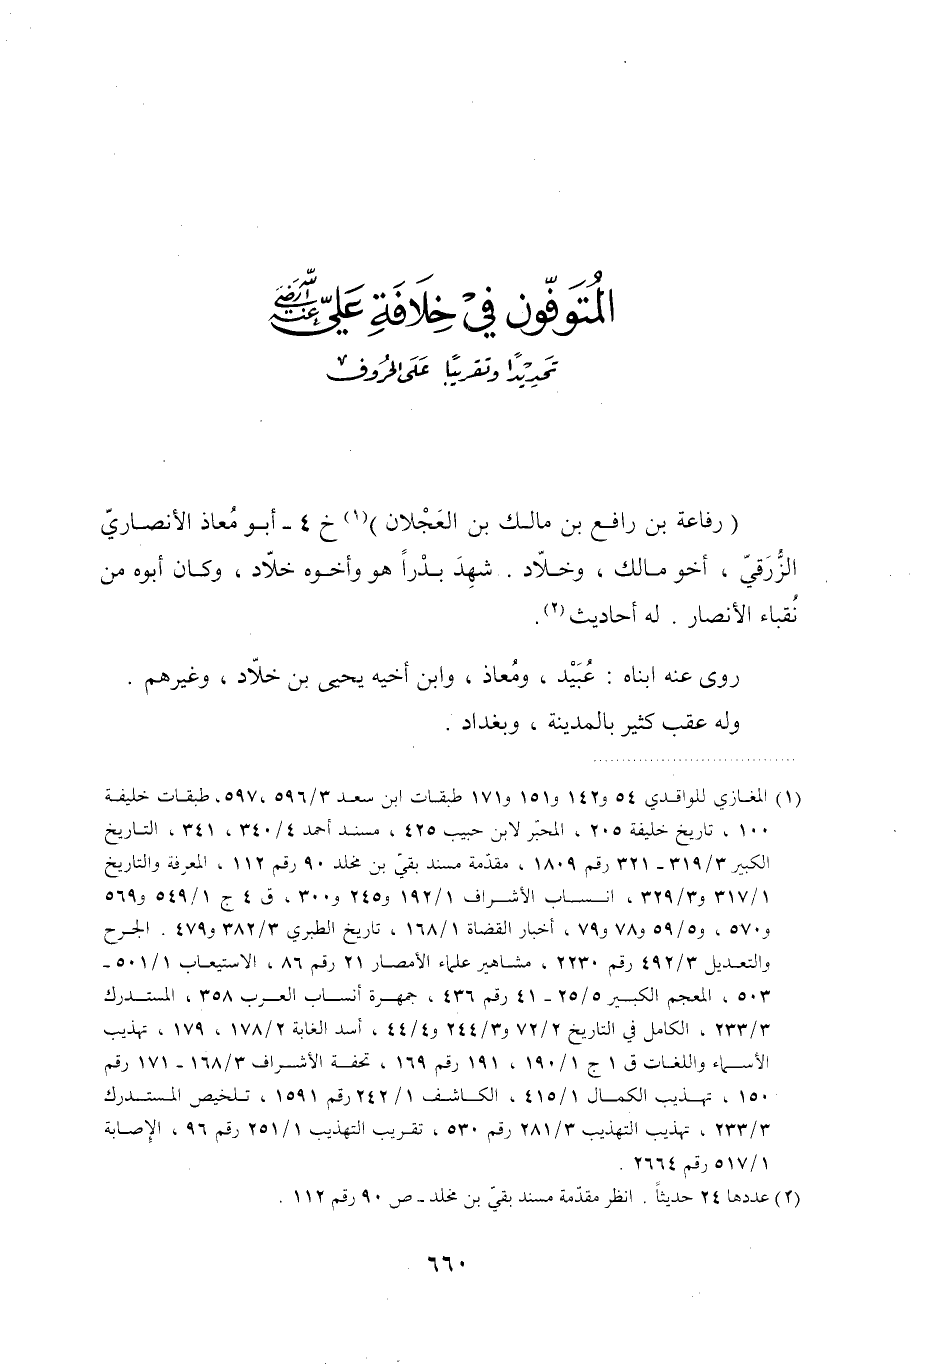 المُتَوَفّون في خِلَافَةِ عَليّ رَضِيَ اللهُ عَنْه
تحديدًا وتقريبًا عَلَى الحُروف
( رفاعة بن رافع بن مالك بن العَجْلان )(١) خ ٤ - أبو مُعاذ الأنصاريّ
الزُّرَقيّ ، أخو مالك ، وخلّاد . شهِدَ بدْراً هو وأخوه خلّاد ، وكان أبوه من
نُقباء الأنصار . له أحاديث(٢).
روى عنه ابناه : عُبَيْد ، ومُعاذ ، وابن أخيه يحيى بن خلّاد ، وغيرهم .
وله عقب كثير بالمدينة ، وبغداد .
(١) المغازي للواقدي ٥٤ و١٤٢ و١٥١ و١٧١ طبقات ابن سعد ٥٩٦/٣ ،٥٩٧، طبقات خليفة
١٠٠ ، تاريخ خليفة ٢٠٥ ، المحبّر لابن حبيب ٤٢٥ ، مسند أحمد ٣٤٠/٤ ، ٣٤١ ، التاريخ
الكبير ٣١٩/٣ - ٣٢١ رقم ١٨٠٩ ، مقدّمة مسند بقيّ بن مخلد ٩٠ رقم ١١٢ ، المعرفة والتاريخ
٣١٧/١ و٣٢٩/٣ ، انساب الأشراف ١٩٢/١ و٢٤٥ و٣٠٠ ، ق ٤ ج ٥٤٩/١ و٥٦٩
و٥٧٠ ، و٥٩/٥ و٧٨ و٧٩ ، أخبار القضاة ١٦٨/١ ، تاريخ الطبري ٣٨٢/٣ و٤٧٩ . الجرح
والتعديل ٤٩٢/٣ رقم ٢٢٣٠ ، مشاهير علماء الأمصار ٢١ رقم ٨٦ ، الاستيعاب ٥٠١/١ -
٥٠٣ ، المعجم الكبير ٢٥/٥ - ٤١ رقم ٤٣٦ ، جمهرة أنساب العرب ٣٥٨ ، المستدرك
٢٣٣/٣ ، الكامل في التاريخ ٧٢/٢ و٢٤٤/٣ و٤٤/٤ ، أسد الغابة ١٧٨/٢ ، ١٧٩ ، تهذيب
الأسماء واللغات ق ١ ج ١٩٠/١ ، ١٩١ رقم ١٦٩ ، تحفة الأشراف ١٦٨/٣ - ١٧١ رقم
١٥٠ ، تهذيب الكمال ٤١٥/١ ، الكاشف ٢٤٢/١ رقم ١٥٩١ ، تلخيص المستدرك
٢٣٣/٣ ، تهذيب التهذيب ٢٨١/٣ رقم ٥٣٠ ، تقريب التهذيب ٢٥١/١ رقم ٩٦ ، الإصابة
٥١٧/١ رقم ٢٦٦٤ .
(٢) عددها ٢٤ حديثاً . انظر مقدّمة مسند بقيّ بن مخلد - ص ٩٠ رقم ١١٢ .
٦٦٠